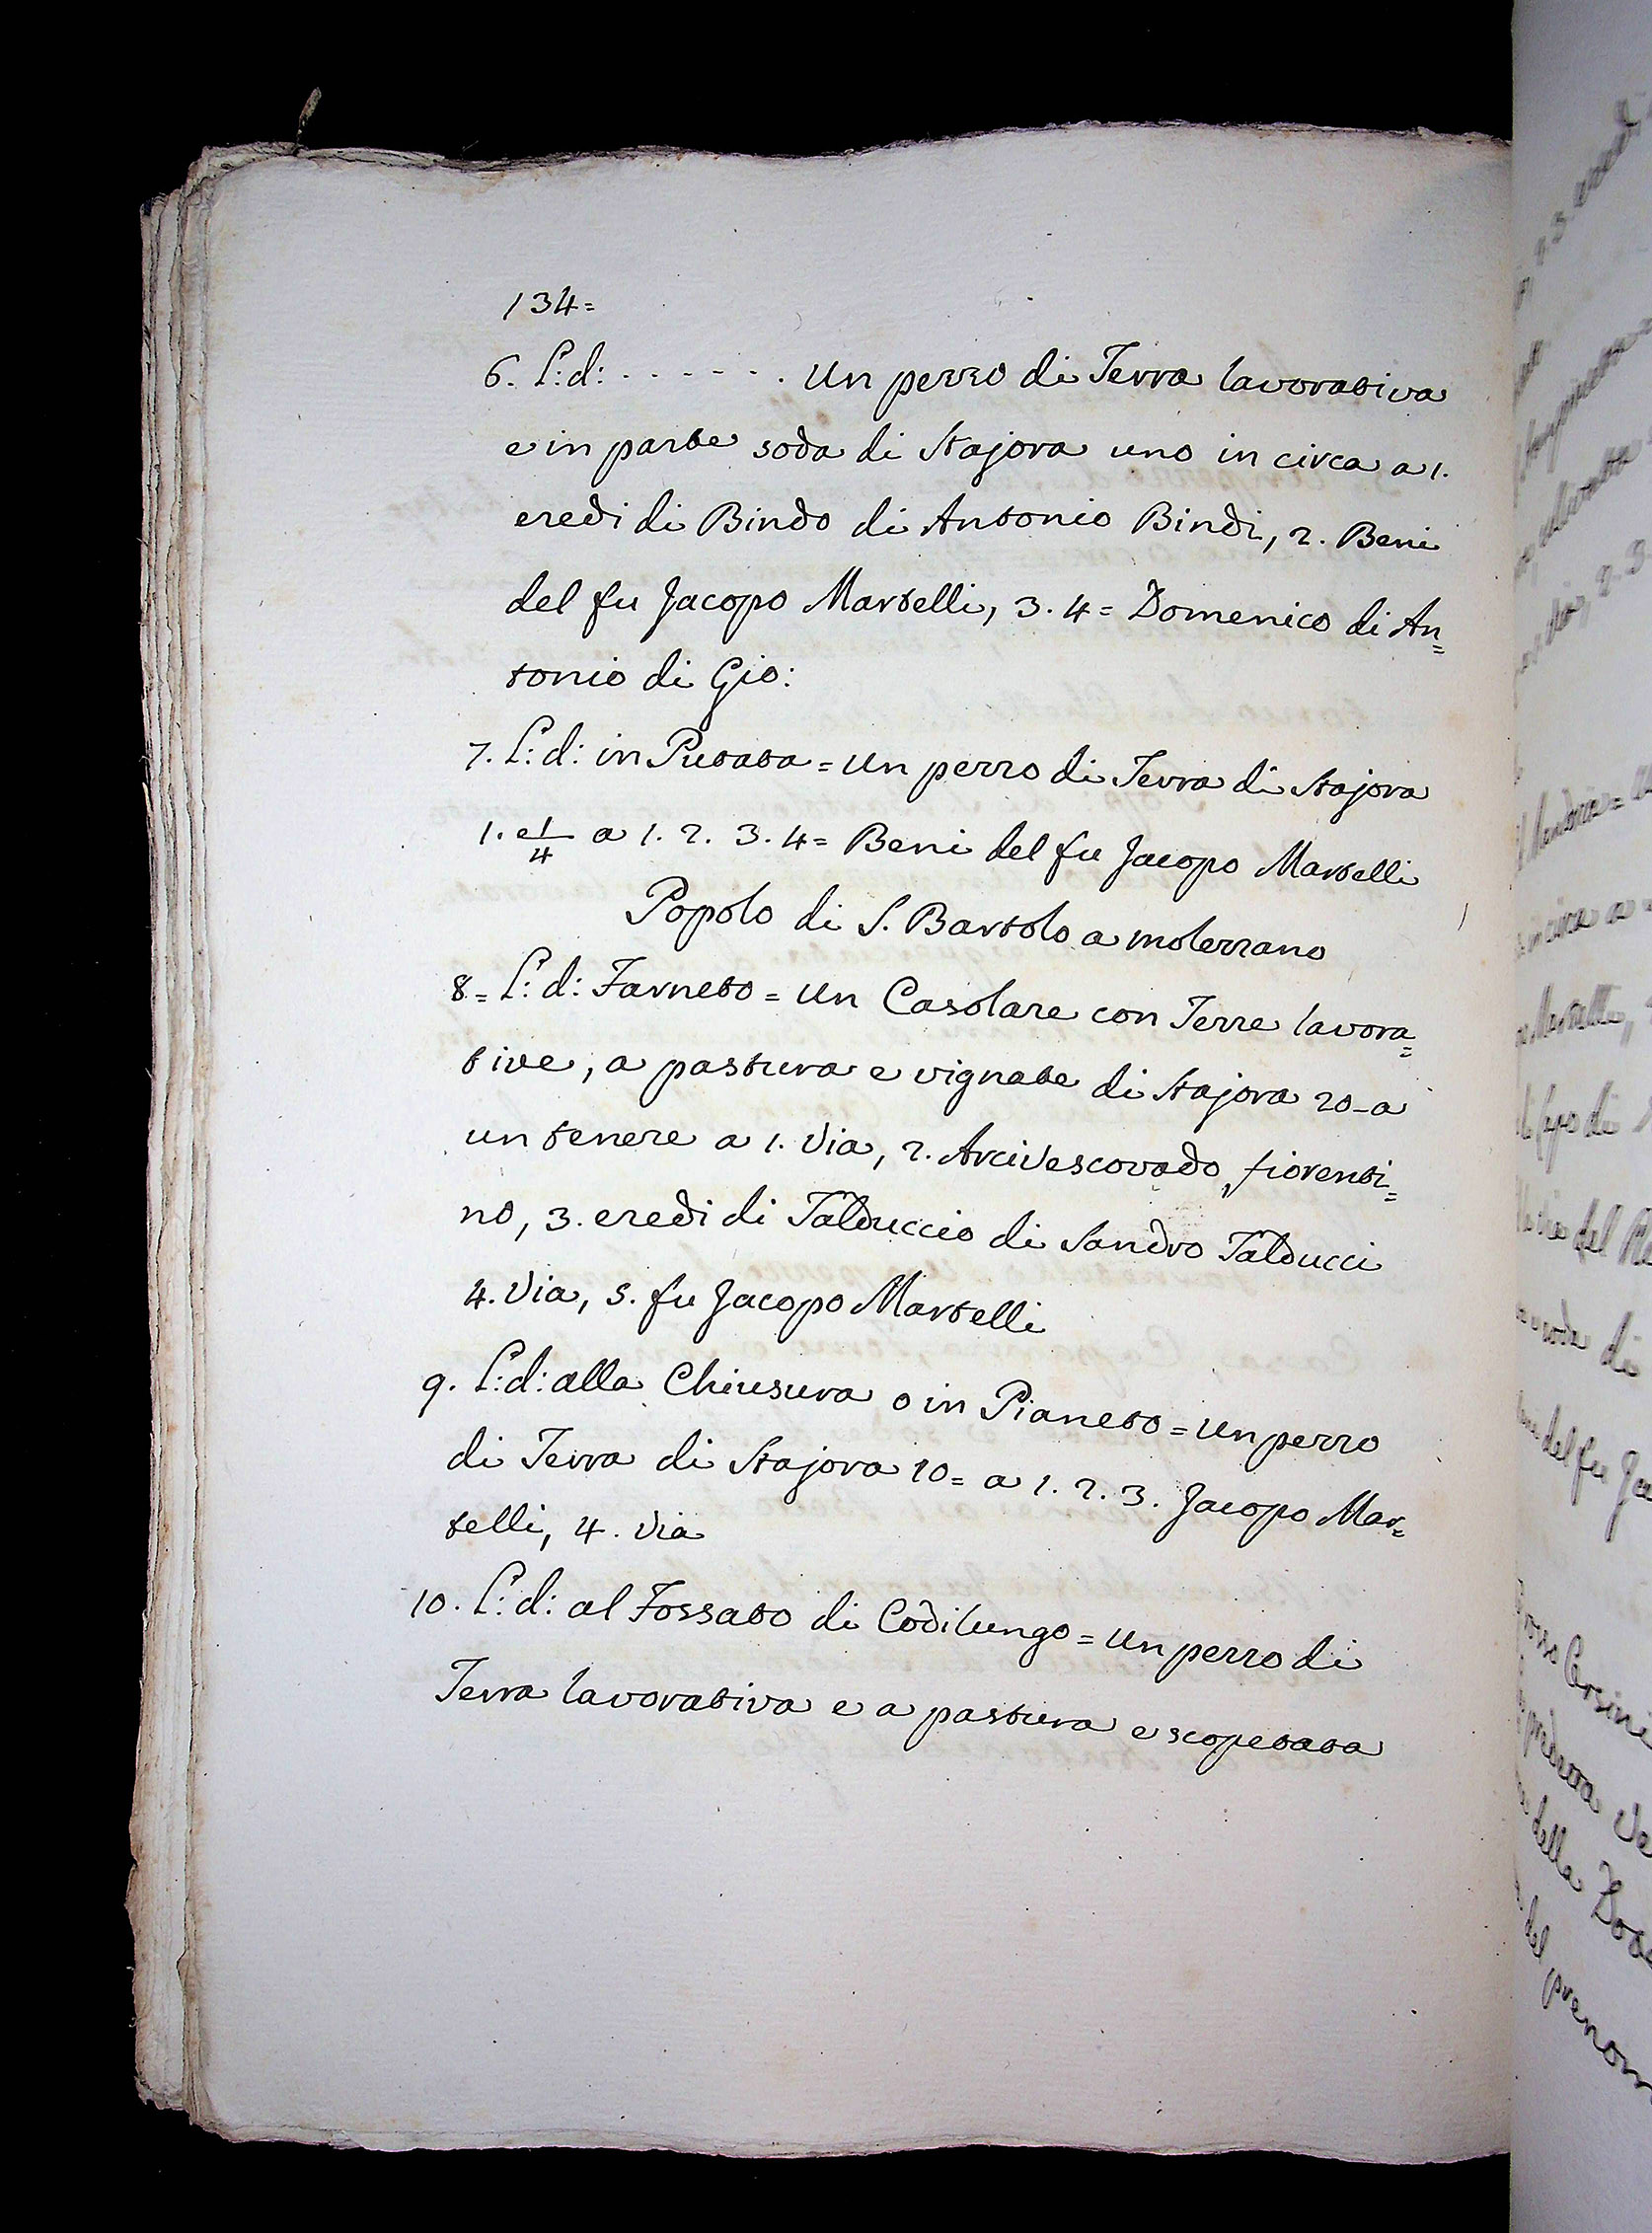 134=
6. L: d: . . - - - . . Un pezzo di Terra lavorativa
e in parte soda di Stajora uno in circa a 1.
eredi di Bindo di Antonio Bindi, 2. Beni
del fu Jacopo Martelli, 3. 4 = Domenico di An=
tonio di Gio:
7. L: d: in Putata = Un pezzo di Terra di Stajora
1. e 1/4 a 1. 2. 3. 4 = Beni del fu Jacopo Martelli
Popolo di S. Bartolo a molezzano
8 = L: d: Farneto = Un Casolare con Terre lavora=
tive, a pastura e vignate di Stajora 20 - a
un tenere a 1. Via, 2. Arcivescovado fiorenti=
no, 3. eredi di Talduccio di Sandro Talducci
4. Via, 5. fu Jacopo Martelli
9. L: d: alla Chiusura o in Pianeto = Un pezzo
di Terra di Stajora 10 = a 1. 2. 3. Jacopo Mar=
telli, 4. Via
10. L: d: al Fossato di Codilungo = Un pezzo di
Terra lavorativa e a pastura e scopetata